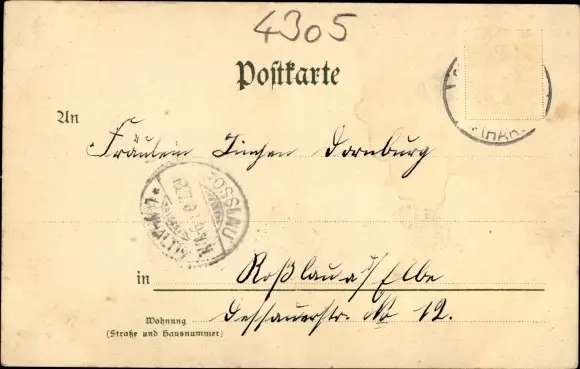 4305
Postkarte
(HAR
An
Fräulein Dornburg
ROSSLAU
in
Roßlau a/Elbe
Wohnung
(Straße und Hausnummer)
Dessauerstr. No 12.